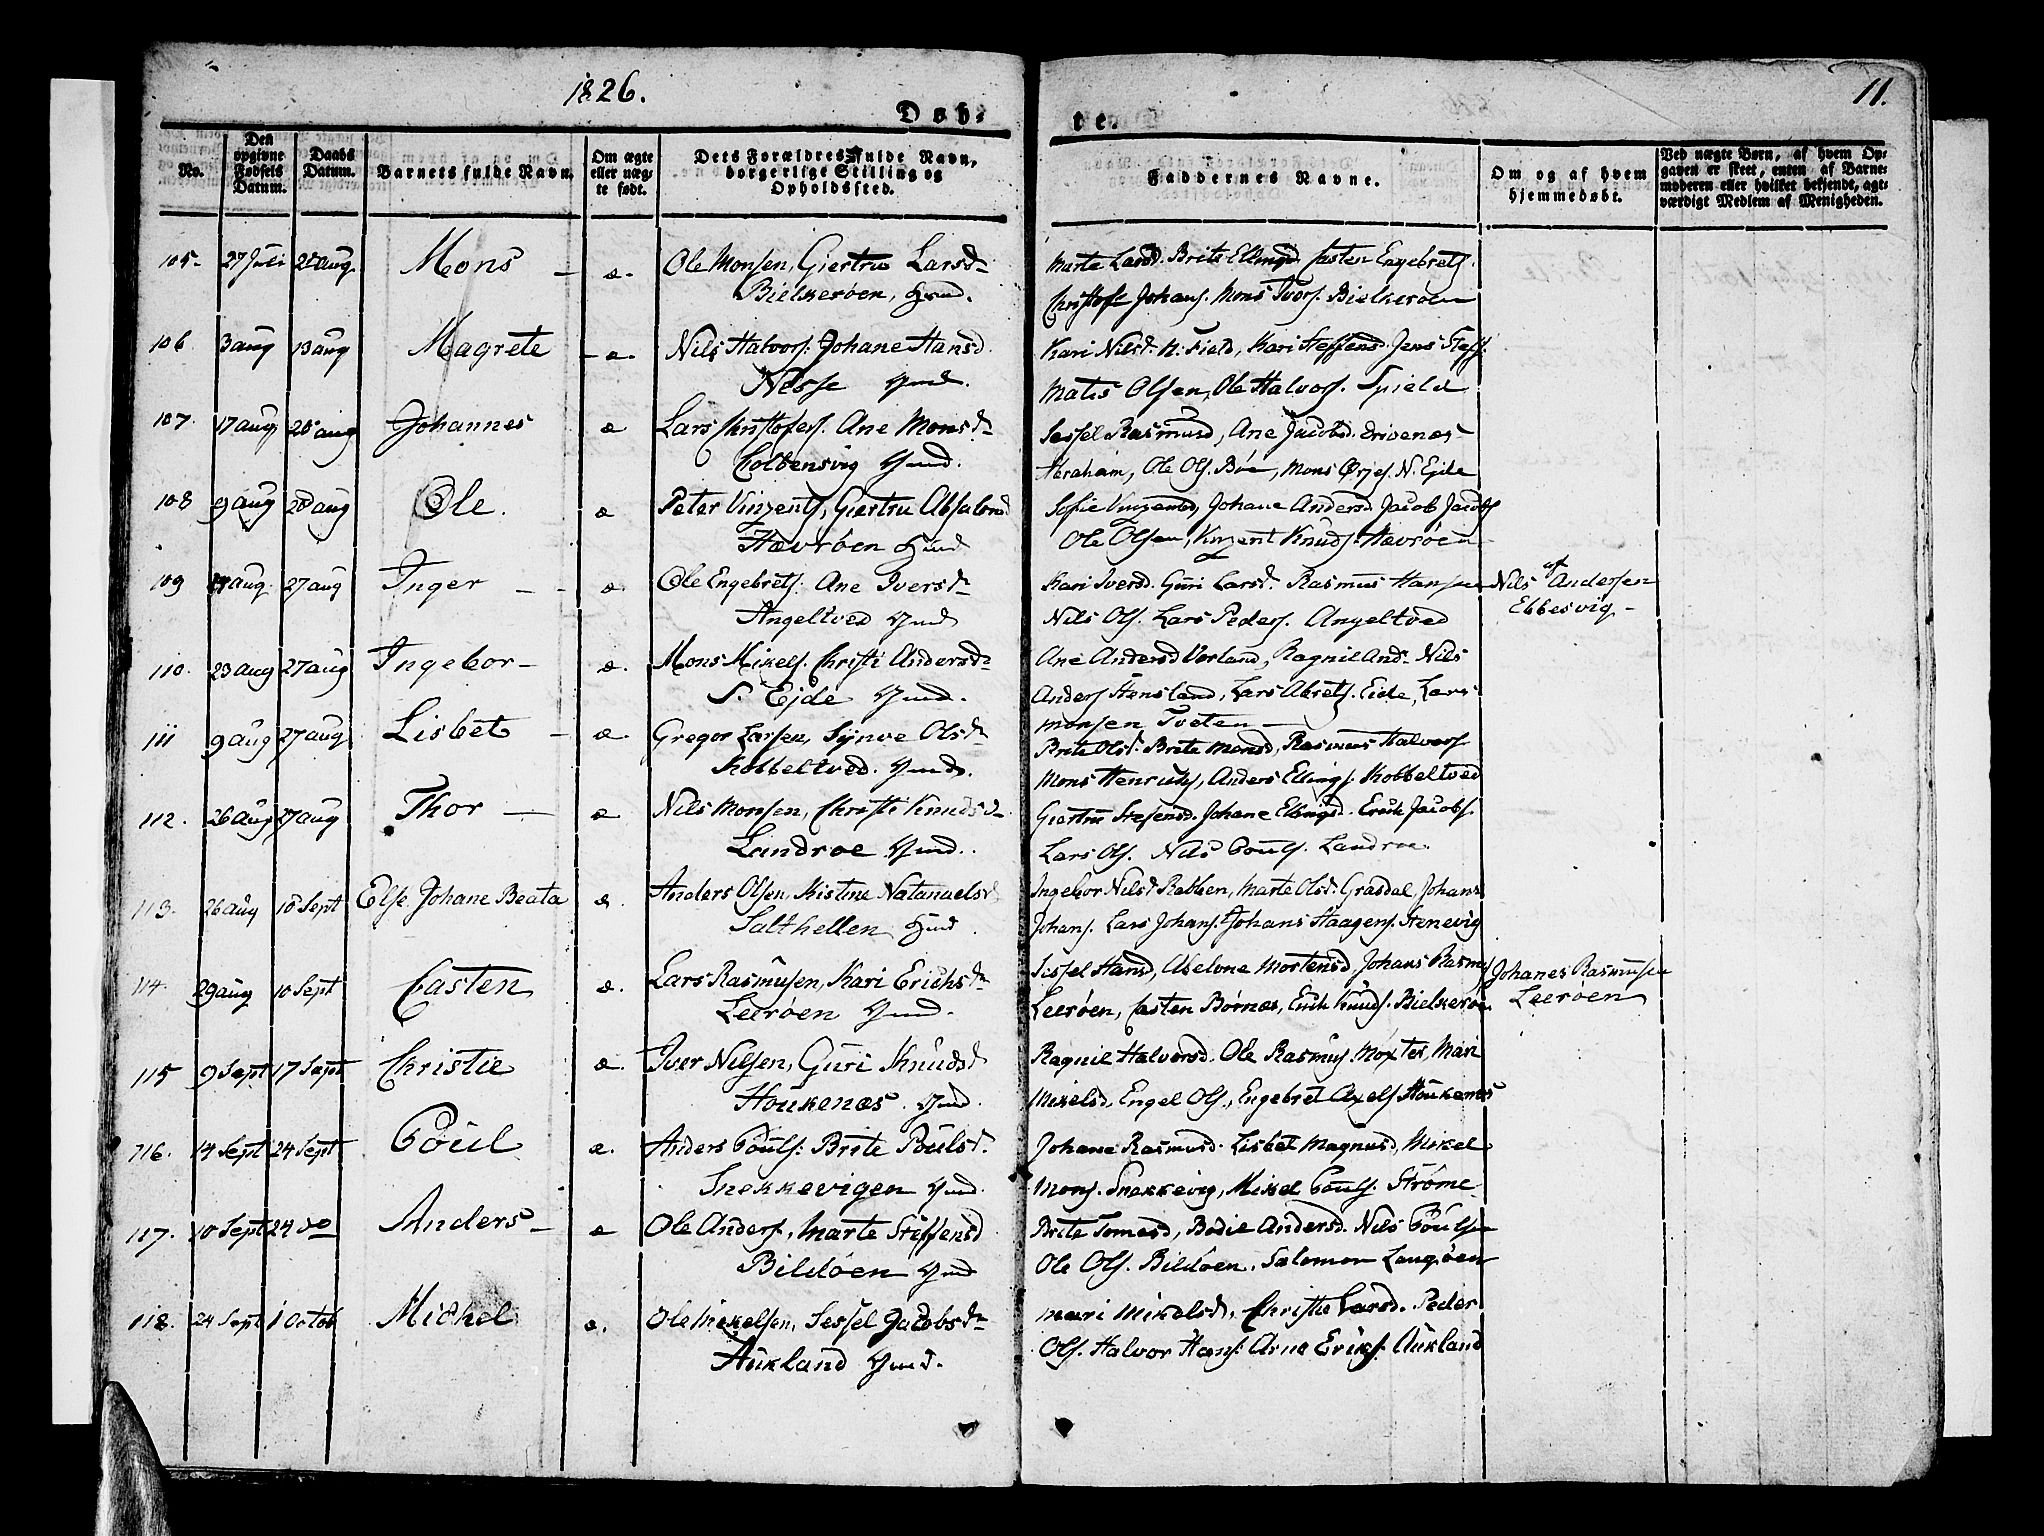 1826.
11.
Døb-
te.
No.
Den opgivne Fødsels Datum.
Daabs Datum.
Barnets fulde Navn.
Om ægte eller uægte født.
Dets Forældres fulde Navn, borgerlige Stilling og Opholdssted.
Faddernes Navne.
Om og af hvem hjemmedøbt.
Ved uægte Børn, af hvem Opgaven er skeet, enten af Barnemoderen eller hvilket bekjendt, agtværdigt Medlem af Menigheden.
105. 27 Juli aug Mons æ. Ole Monsen, Giertru Larsd. Marte Larsd. Brite Ellingsd. Casten Engebrets.
Bielkerøen, Hmd. Christof. Johans. Mons Ivers. Bielkerøen
106 3 aug 13 aug Magrete æ. Nils Halvors. Johane Hansd. Kari Nilsd. N. Field, Kari Steffensd. Jens Steff.
Nesse Hmd. Matis Olsen, Ole Halvors. Field
107. 17 aug 20 aug Johannes æ Lars Christofers. Ane Monsd. Sessel Rasmusd, Ane Jacobsd. Drivenæs
Coltensvig Hmd. Abraham, Ole Ols. Bøe, Mons Ørjes. N. Ejde
108 9 aug 20 aug Ole. æ Peter Vinzents, Giertru Absalonsd Sofie Vinzentsd, Johane Andersd. Jacob Jacobs
Hævrøen Hmd Ole Olsen, Vinzent Knuds. Hævrøen
109 aug. 27 aug Inger æ. Ole Engebrets. Ane Iversd. Kari Iversd. Guri Larsd. Rasmus Hansen Nils Andersen
Angeltved Hmd Nils Ols. Lars Peders. Angeltved Ebbesvig
110. 23 aug 27 aug Ingebor æ. Mons Mikels. Christi Andersd. Ane Andersd Vorland, Ragnil And. Nils
S. Ejde Hmd. Anders Stensland, Lars Abrets. Eide, Lars
Monsen Tveten
111 9 aug 27 aug Lisbet æ Gregor Larsen, Synve Olsd. Brite Olsd. Brete Monsd, Rasmus Halvors
Kobbeltved. Hmd. Mons Henriks, Anders Ellings. Kobbeltved
112. 26 aug 27 aug Thor æ Nils Monsen, Christi Knudsd. Giertru Stefensd. Johane Ellingsd. Erick Jacobs.
Landroe Hmd. Lars Ols. Nils Pouls. Landroe
113. 26 aug 10 Sept Else Johane Beata æ. Anders Olsen, Kistine Natanaelsd Ingebor Nilsd. Rabben, Marte Olsd. Grasdal, Johans
Salthellen Hmd. Johans. Lars Johans. Johans Haagens. Stenevig
114. 29 aug 10 Sept Casten æ. Lars Rasmusen, Kari Erichsd. Sessel Hansd, Abelone Mortensd, Johans Rasmus Johanes Rasmusen
Leerøen Hmd. Leerøen, Casten Børnæs, Erik Knuds. Bielkerøe Leerøen
115 9 Sept 17 Sept Christie æ. Iver Nilsen, Guri Knudsd Ragnil Halvorsd. Ole Rasmus. Moxter, Mari
Houkenæs. Hmd. Mikelsd, Engel Ols., Engebret Axels Houkenæs
116. 14 Sept 24 Sept Poul æ. Anders Pouls. Brite Poulsd. Johane Rasmusd. Lisbet Magnusd, Mikel
Snekkevigen Hmd Mons. Snekkevig, Mikel Pouls. Strøme
117. 10 Sept 24 do Anders æ Ole Anders., Marte Steffensd Brite Tomesd, Bodie Andersd. Nils Poulsen
Bildøen Hmd Ole Ols. Bildøen. Salomon Langøen
118. 24 Sept 1 Octob Michel æ. Ole Mikelsen, Sessel Jacobsd. Mari Mikelsd, Christie Larsd. Peder
Aukland Hmd. Ols. Halvor Hans. Arne Eriks. Aukland